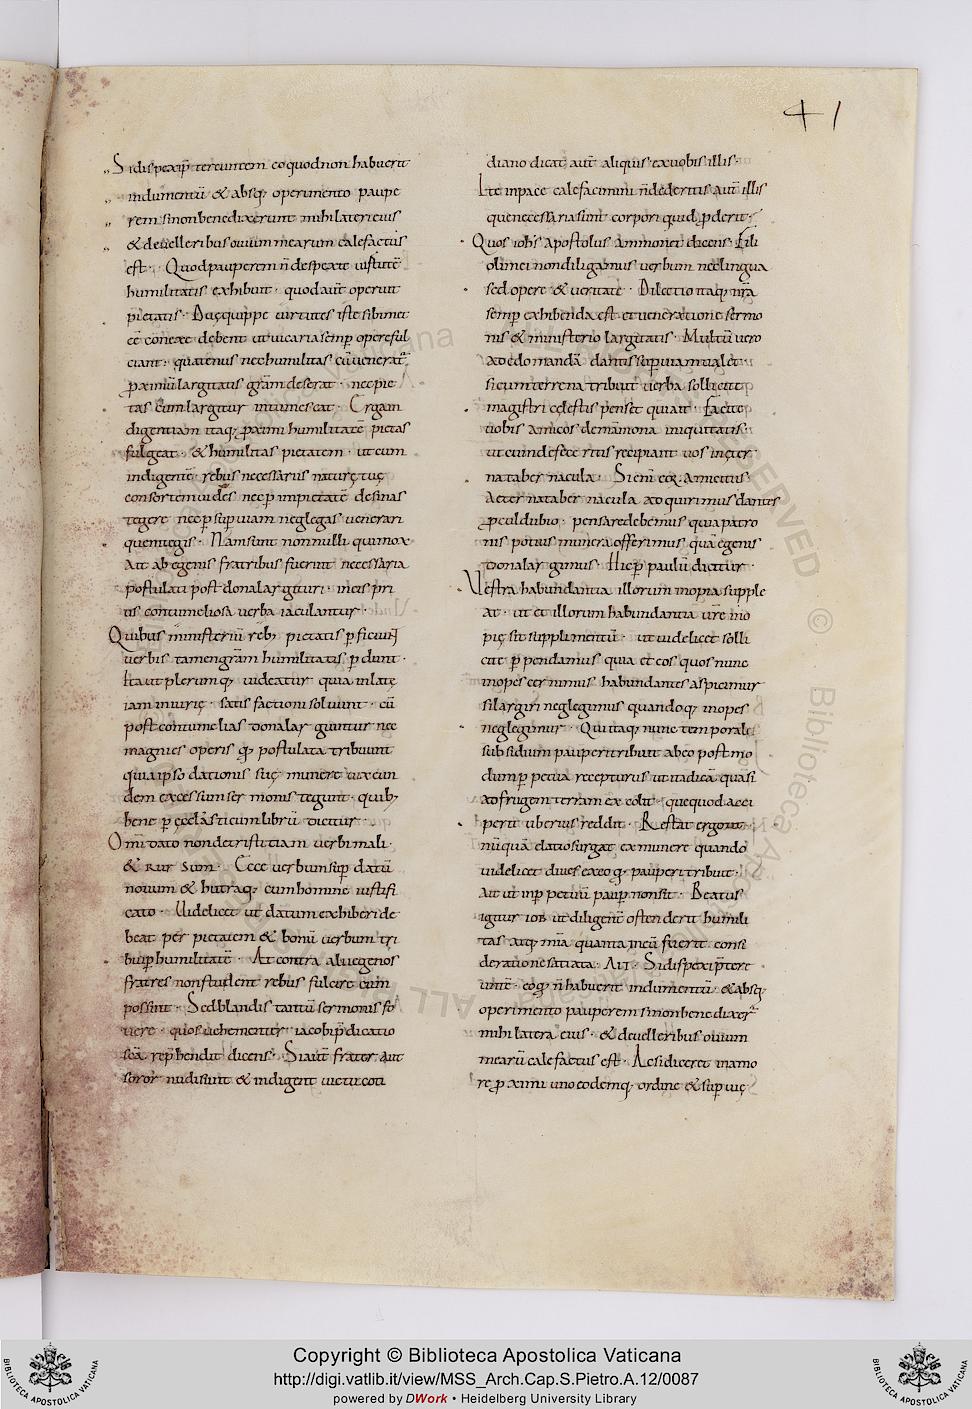 41
Si dispexi p̄tereuntem eo quod non habuerit
indumentū & absq; operimento paupe
rem si non benedixerunt mihi latera eius
& de uelleribus ouium mearum calefactus
est · Quod pauperem n̄ despexit uirtutē
humilitatis exhibuit · quod aut̄ operuit
pietatis · Duę quippe uirtutes iste sibimet
eē conexe debent ut uicaria semp̄ opere ful
ciant · quatenus nec humilitas cū ueneratur
proximū largitatis grām deserat · nec pie
tas cum largitur intumescat · Erga in
digentiam itaq; proximi humilitatē pietas
fulgeat · & humilitas pietatem · ut cum
indigentē rebus necessariis naturę tuę
consortem uides nec p̄ impietatē desinas
tegere nec p̄ sup̄biam neglegas uenerari
quem tegis · Nam sunt nonnulli qui mox
ut ab egenis fratribus fuerint necessaria
postulati post dona largituri · in eis pri
us contumeliosa uerba iaculantur ·
Quibus ministeriū reb; pietatis p̄ficiunt
uerbis tamen grām humilitatis p̄dunt ·
Ita ut plerumq; uideatur quia inlatę
iam iniurię · satisfactionē soluunt · cū
post contumelias dona largiuntur nec
magni est operis q̄ postulata tribuunt
quia ipso dationis suę munere uix eun
dem excessum sermonis tegunt · quib;
bene p̄ ęcclāsticum librū dicitur ·
Omī dato non des tristitiam uerbi mali ·
& Rursum · Ecce uerbum sup̄ datū
bonum & utraq; cum homine iustifi
cato · Uidelicet ut datum exhiberi de
beat per pietatem & bonū uerbum tri
bui p̄ humilitatē · At contra alii egenos
fratres non student rebus fulcire cum
possint · Sed blandis tantū sermonis fo
uere · quos uehementer iacobi p̄dicatio
scā rep̄hendit dicens · Si aut̄ frater aut
soror nudi sunt & indigent uictu coti
diano dicat aut̄ aliquis ex uobis illis ·
Ite in pace calefacimini n̄ dederitis aut̄ illis
que necessaria sunt corpori quid proderit ·
Quos iohs apostolus ammonet dicens · Fili
oli mei non diligamus uerbum nec lingua
sed opere & ueritate · Dilectio itaq; nr̄a
semp̄ exhibenda est et ueneratione sermo
nis & ministerio largitatis · Multū uero
ad edomandā dantis sup̄biam ualet ·
si cum terrena tribuit uerba sollicite
magistri cęlestis penset qui ait · Facite
uobis amicos de mamona iniquitatis ·
ut cum defeceritis recipiant uos in ęter
na tabernacula · Si enī eoꝝ amicitiis
aeterna tabernacula adquirimus dantes
proculdubio · pensare debemus quia patro
nis potius munera offerimus quā egenis
dona largimus · Hic p̄ paulū dicitur ·
Uestra habundantia illorum inopia supple
at · ut et illorum habundantia ur̄e ino
pię sit supplimentū · ut uidelicet solli
cite p̄pendamus quia et eos quos nunc
inopes cernimus habundantes aspicimur
si largiri neglegimus quandoq; inopes
neglegimur · Qui itaq; nunc temporale
subsidium pauperi tribuit ab eo postmo
dum p̄petua recepturus ut ita dicā quasi
ad frugem terram excolit · quę quod acce
perit uberius reddit · Restat ergo ut
nūquā elatio surgat ex munere quando
uidelicet diues ex eo q̄ pauperi tribuit ·
agit ut inp̄petuū paup̄ non sit · Beatus
igitur iob ut diligenē ostenderit humili
tas atq; mīa quanta in eū fuerit consi
deratione satiata · Ait · Si dispexi p̄tere
untē · eo q̄ n̄ habuerit indumentū · & absq;
operimento pauperem si non benedixer̄
mihi latera eius · & de uelleribus ouium
mearū calefactus est · Ac si diceret in amo
re proximi uno eodemq; ordine & sup̄bię
Copyright © Biblioteca Apostolica Vaticana
http://digi.vatlib.it/view/MSS_Arch.Cap.S.Pietro.A.12/0087
powered by DWork • Heidelberg University Library